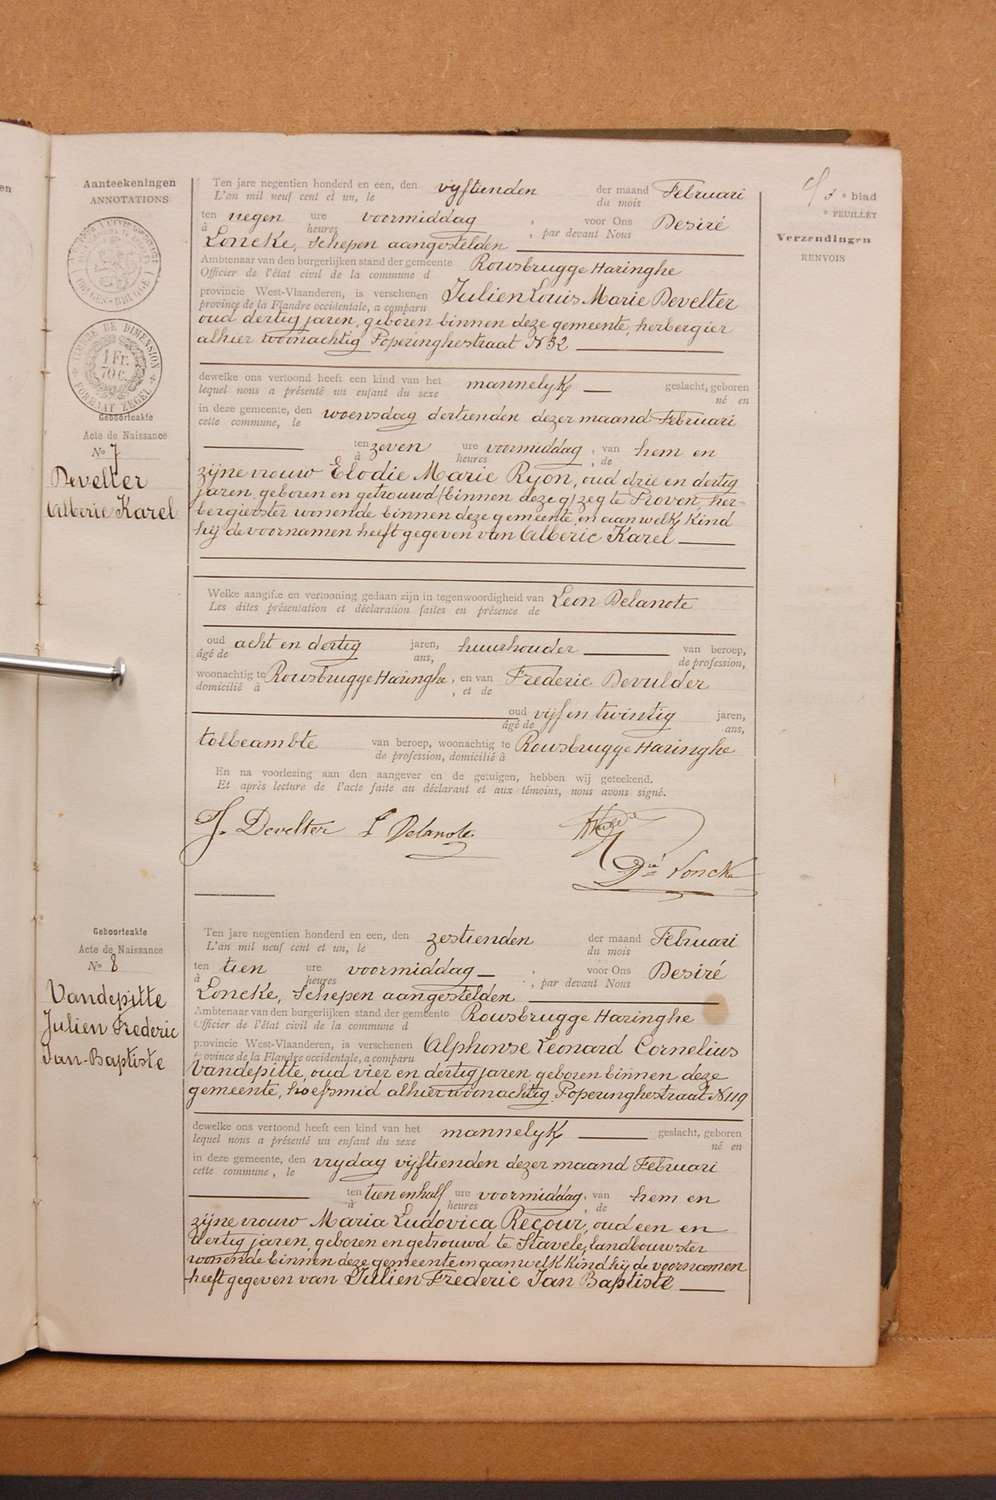 5e blad
e FEUILLET
Verzendingen
RENVOIS
Aanteekeningen
ANNOTATIONS
TIMBRE DE DIMENSION
1 Fr.
70 c.
FORMAAT ZEGEL
Geboorteakte
Acte de Naissance
No 7
Develter
Alberic Karel
Ten jare negentien honderd en een, den vijftienden der maand Februari
L'an mil neuf cent et un, le du mois
ten negen ure voormiddag , voor Ons Desiré
à heures , par devant Nous
Loncke, Schepen aangestelden
Ambtenaar van den burgerlijken stand der gemeente Rousbrugge Haringhe
Officier de l'état civil de la commune d
provincie West-Vlaanderen, is verschenen Julien Louis Marie Develter
province de la Flandre occidentale, a comparu
oud dertig jaren, geboren binnen deze gemeente, herbergier
alhier woonachtig Poperinghestraat N 32
dewelke ons vertoond heeft een kind van het mannelyk geslacht, geboren
lequel nous a présenté un enfant du sexe né en
in deze gemeente, den woensdag dertienden dezer maand Februari
cette commune, le
ten zeven ure voormiddag, van hem en
à heures , de
zijne vrouw Elodie Marie Ryon, oud drie en dertig
jaren, geboren en getrouwd (binnen deze g) zeg te Proven, her-
bergierster wonende binnen deze gemeente, en aan welk kind
hij de voornamen heeft gegeven van Alberic Karel
Welke aangifte en vertooning gedaan zijn in tegenwoordigheid van Leon Delanote
Les dites présentation et déclaration faites en présence de
oud acht en dertig jaren, huurhouder van beroep,
âgé de ans, de profession,
woonachtig te Rousbrugge Haringhe, en van Frederic Devulder
domicilié à , et de
oud vijf en twintig jaren,
âgé de ans,
tolbeambte van beroep, woonachtig te Rousbrugge Haringhe
de profession, domicilié à
En na voorlezing aan den aangever en de getuigen, hebben wij geteekend.
Et après lecture de l'acte faite au déclarant et aux témoins, nous avons signé.
J. Develter L Delanote
Dré Loncke
Geboorteakte
Acte de Naissance
No 8
Vandepitte
Julien Frederic
Jan-Baptiste
Ten jare negentien honderd en een, den zestienden der maand Februari
L'an mil neuf cent et un, le du mois
ten tien ure voormiddag , voor Ons Desiré
à heures , par devant Nous
Loncke, Schepen aangestelden
Ambtenaar van den burgerlijken stand der gemeente Rousbrugge Haringhe
Officier de l'état civil de la commune d
provincie West-Vlaanderen, is verschenen Alphonse Leonard Cornelius
province de la Flandre occidentale, a comparu
Vandepitte, oud vier en dertig jaren geboren binnen deze
gemeente, hoefsmid alhier woonachtig, Poperinghestraat N 119
dewelke ons vertoond heeft een kind van het mannelyk geslacht, geboren
lequel nous a présenté un enfant du sexe né en
in deze gemeente, den vrydag vijftienden dezer maand Februari
cette commune, le
ten tien en half ure voormiddag, van hem en
à heures , de
zijne vrouw Maria Ludovica Recour, oud een en
dertig jaren, geboren en getrouwd te Stavele, landbouwster
wonende binnen deze gemeente en aan welk kind hij de voornamen
heeft gegeven van Julien Frederic Jan Baptiste